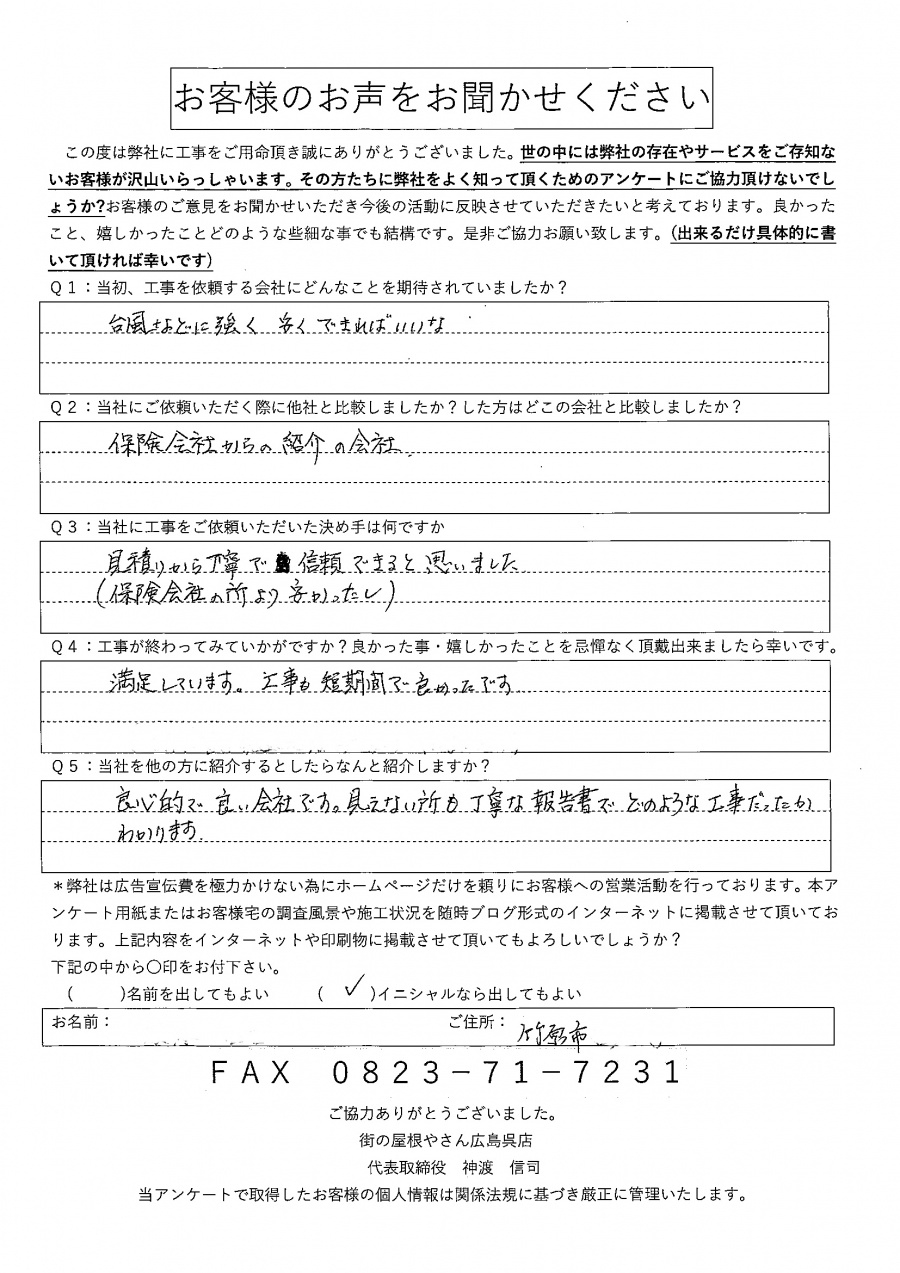 お客様のお声をお聞かせください
この度は弊社に工事をご用命頂き誠にありがとうございました。世の中には弊社の存在やサービスをご存知な
いお客様が沢山いらっしゃいます。その方たちに弊社をよく知って頂くためのアンケートにご協力頂けないでし
ょうか?お客様のご意見をお聞かせいただき今後の活動に反映させていただきたいと考えております。良かった
こと、嬉しかったことどのような些細な事でも結構です。是非ご協力お願い致します。(出来るだけ具体的に書
いて頂ければ幸いです)
Q1：当初、工事を依頼する会社にどんなことを期待されていましたか？
台風などに強く 安くできればいいな
Q2：当社にご依頼いただく際に他社と比較しましたか？した方はどこの会社と比較しましたか？
保険会社からの紹介の会社.
Q3：当社に工事をご依頼いただいた決め手は何ですか
見積りから丁寧で 信頼できると思いました
(保険会社の所より安かったし)
Q4：工事が終わってみていかがですか？良かった事・嬉しかったことを忌憚なく頂戴出来ましたら幸いです。
満足しています。工事も短期間で良かったです
Q5：当社を他の方に紹介するとしたらなんと紹介しますか？
良心的で良い会社です。見えない所も丁寧な報告書でどのような工事だったか
わかります.
＊弊社は広告宣伝費を極力かけない為にホームページだけを頼りにお客様への営業活動を行っております。本ア
ンケート用紙またはお客様宅の調査風景や施工状況を随時ブログ形式のインターネットに掲載させて頂いてお
ります。上記内容をインターネットや印刷物に掲載させて頂いてもよろしいでしょうか？
下記の中から〇印をお付下さい。
( )名前を出してもよい ( ✓ )イニシャルなら出してもよい
お名前： ご住所： 竹原市
FAX 0823-71-7231
ご協力ありがとうございました。
街の屋根やさん広島呉店
代表取締役 神渡 信司
当アンケートで取得したお客様の個人情報は関係法規に基づき厳正に管理いたします。